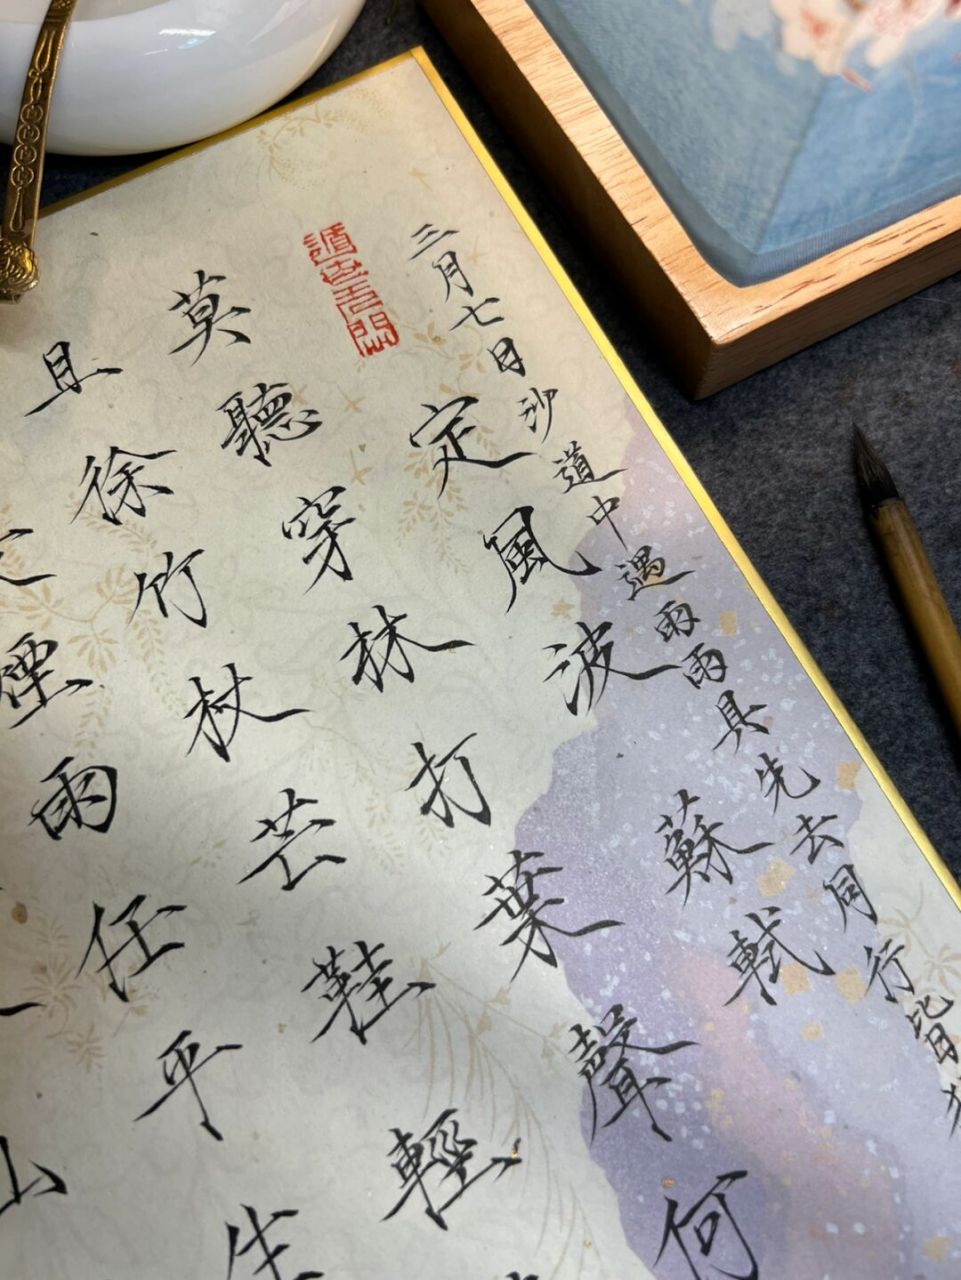 三月七日沙道中遇雨雨具先去同行皆
定風波 蘇軾
遁世无悶
莫聽穿林打葉聲何
且徐竹杖芒鞋輕
煙雨任平生
山